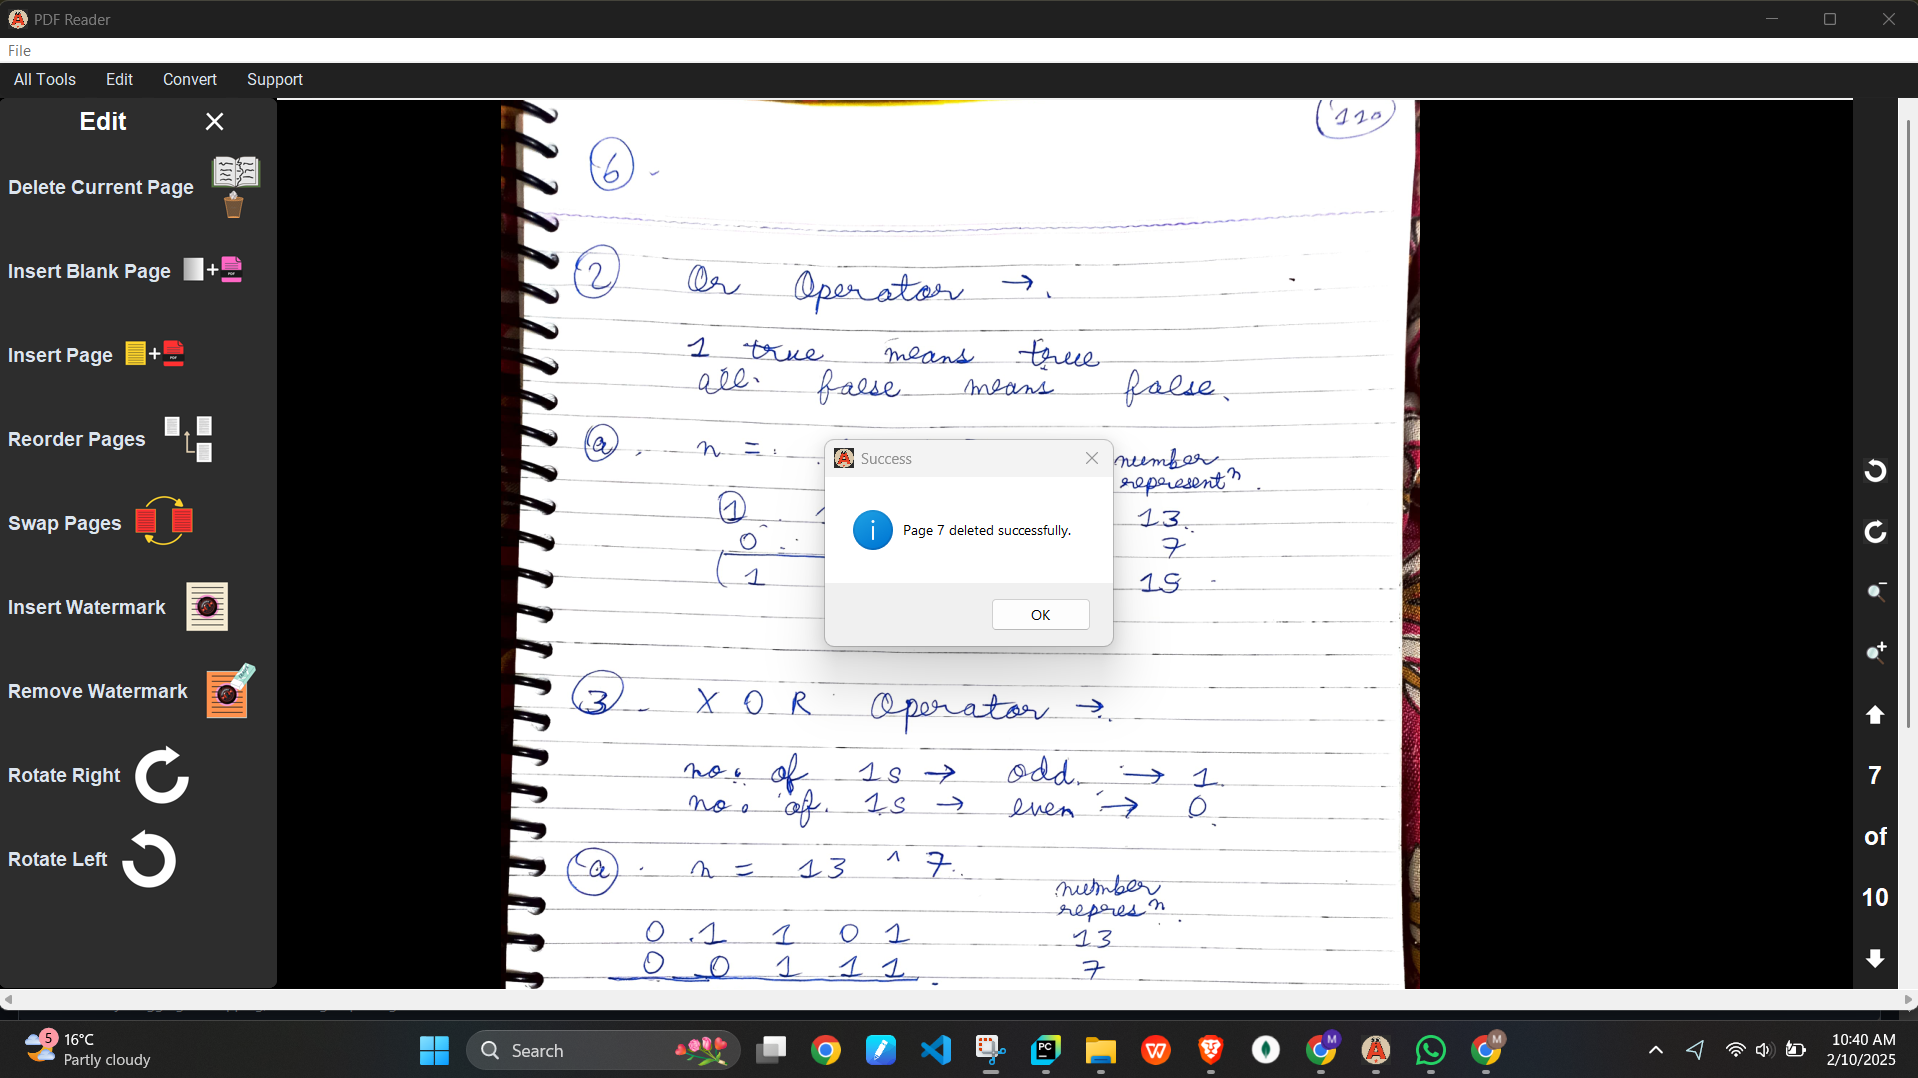 PDF Reader
File
All Tools Edit Convert Support
Edit
Delete Current Page
Insert Blank Page
Insert Page
Reorder Pages
Swap Pages
Insert Watermark
Remove Watermark
Rotate Right
Rotate Left
110
6 -
2 Or Operator →.
1 true means true
all false means false.
a. n =
number
represent^n.
1 13
0 7
1 15
Success
Page 7 deleted successfully.
OK
3 - X O R Operator →.
no. of 1s → odd. → 1.
no. of. 1s → even → 0.
a. n = 13 ^ 7.
number
repres^n.
0 1 1 0 1 13
0 0 1 1 1 7
7
of
10
5
16°C
Partly cloudy
Search
PC
M
M
10:40 AM
2/10/2025